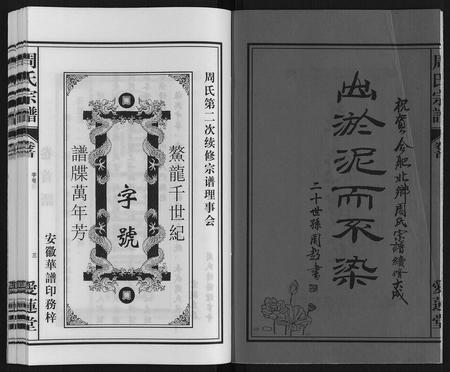 祝贺合肥北鄉周氏宗譜續修大成
出淤泥而不染
二十世孫周越書
周氏宗譜
卷首
愛蓮堂
周氏第二次续修宗谱理事会
鰲龍千世紀
字號
譜牒萬年芳
安徽華譜印務梓
周氏宗譜
卷首
字号
三
愛蓮堂